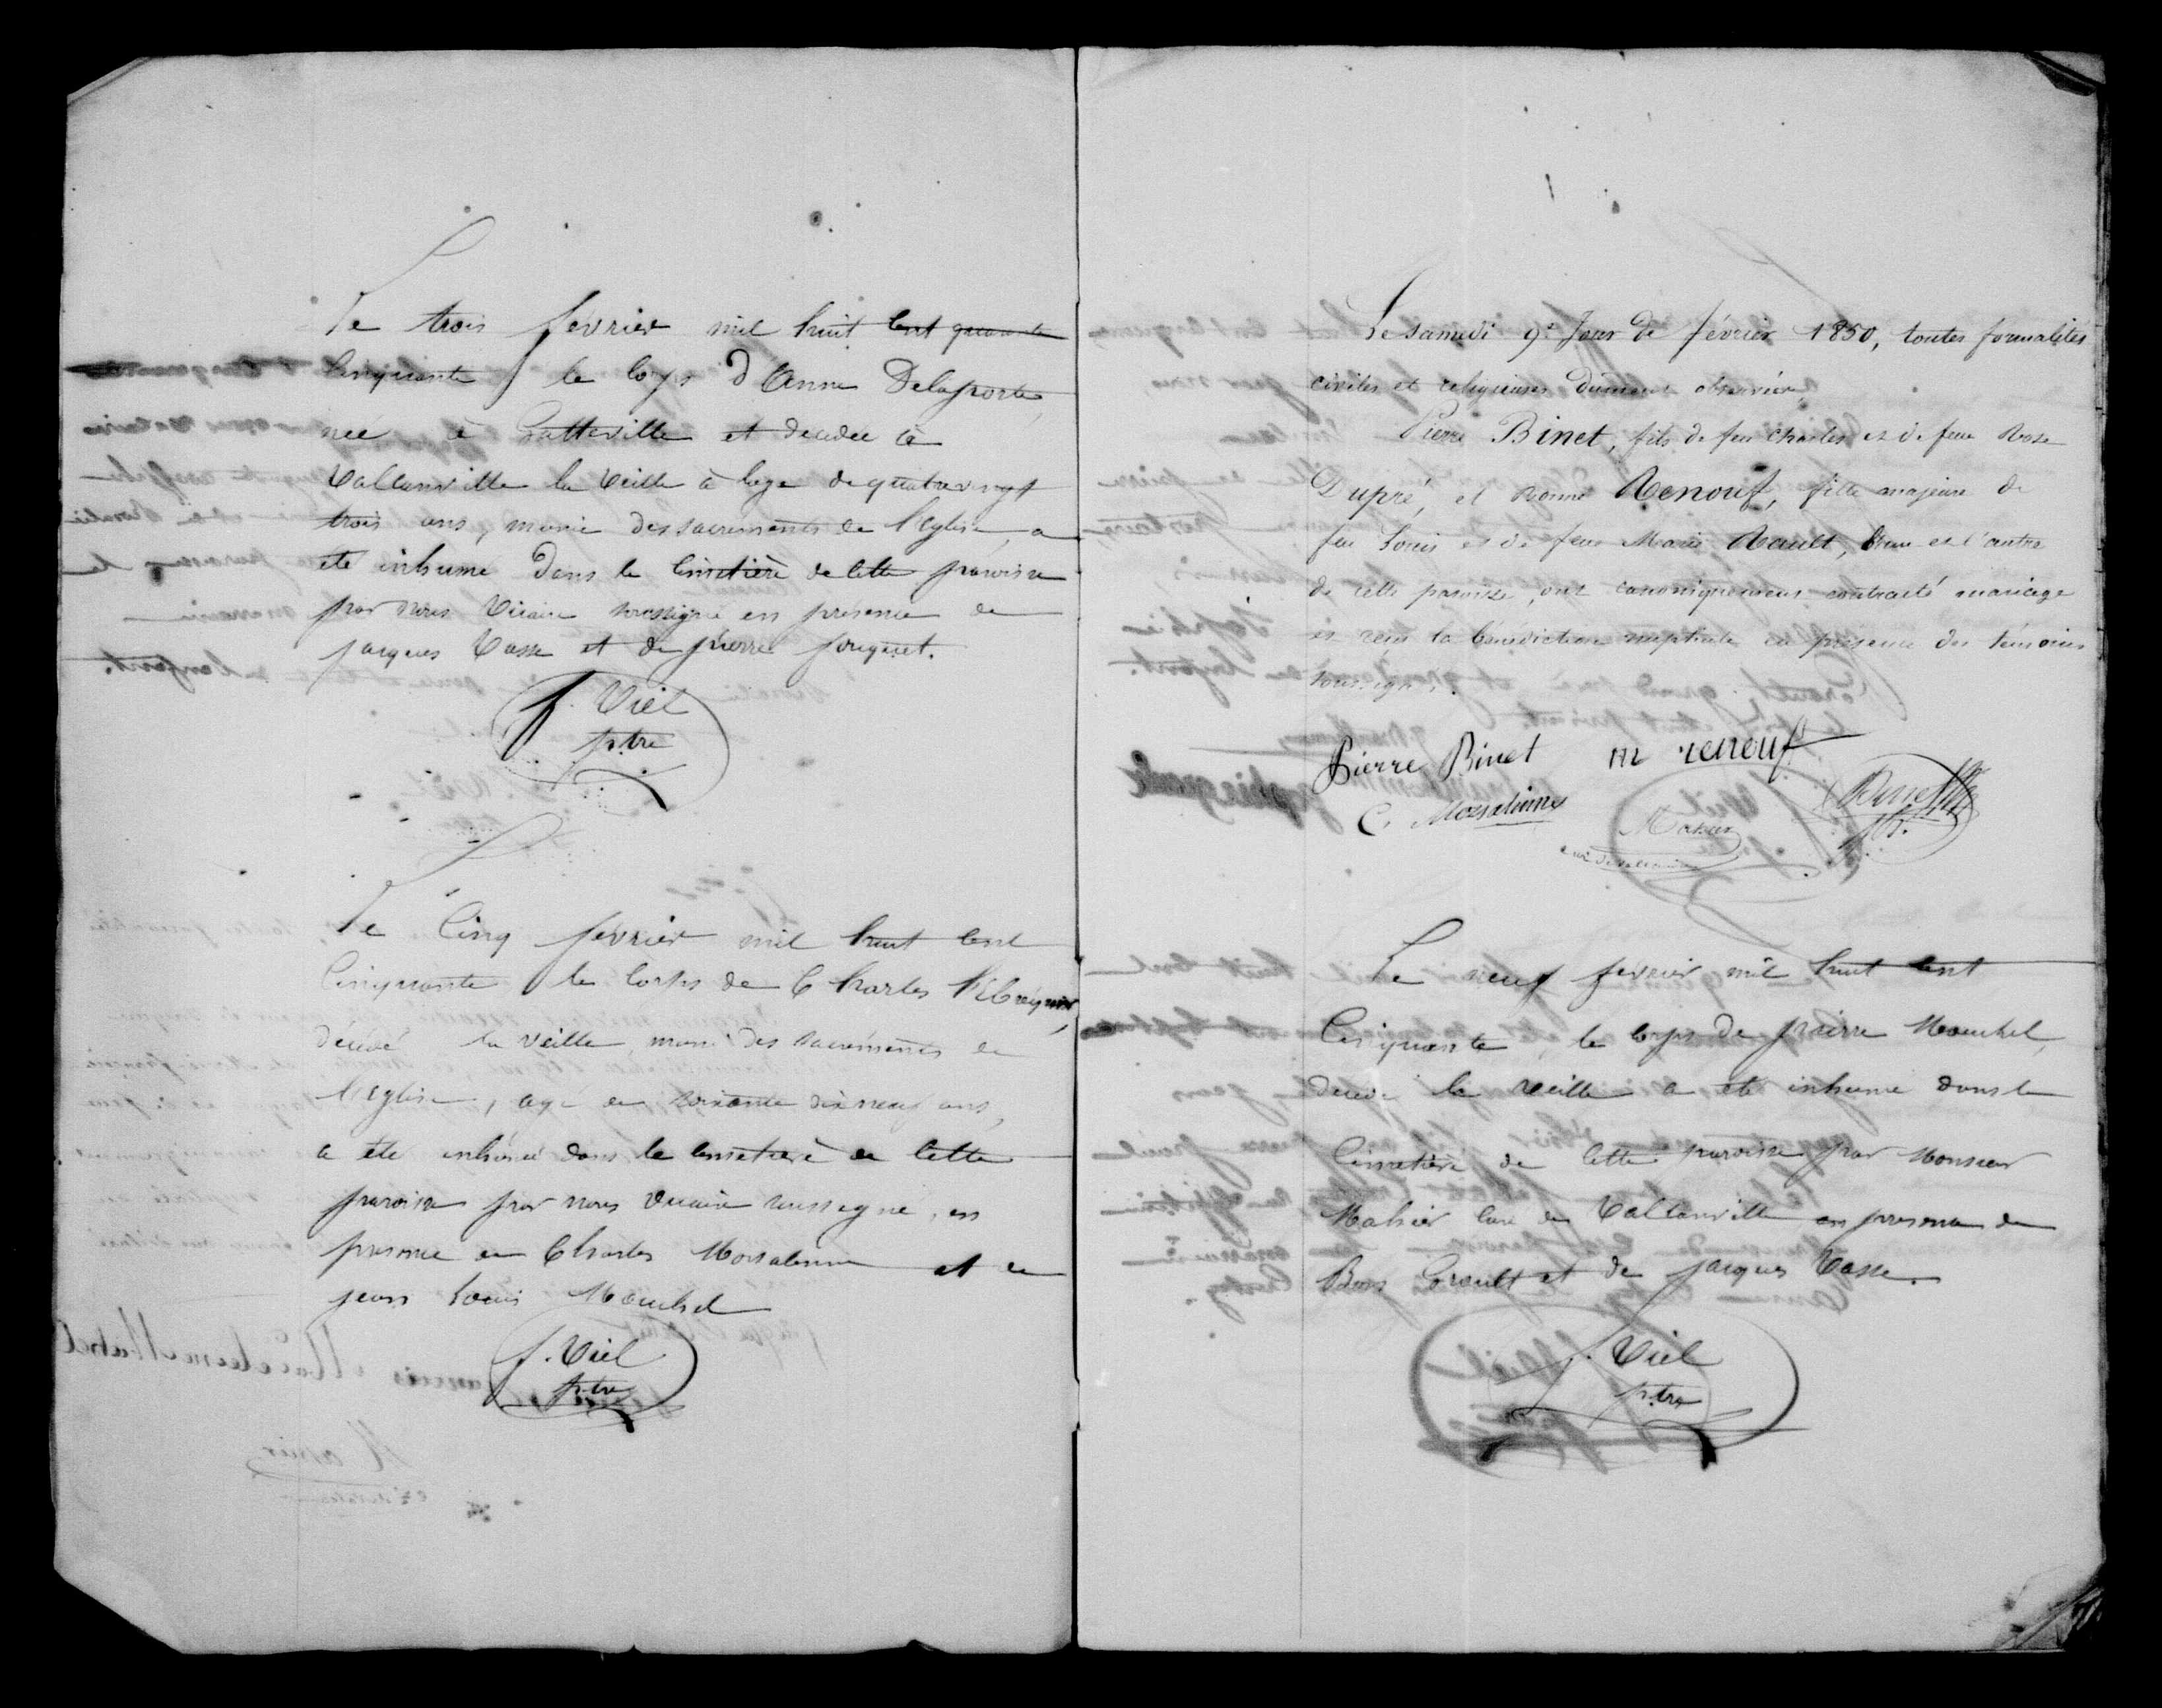 Le trois février mil huit cent quarante
Cinquante le corps d'Anne Delaporte,
née à Gatteville et decedee à
Vallanville la veille à l'age de quatrevingt
trois ans, munie des sacrements de l'eglise, a
été inhumé dans le Cimetière de cette paroisse
par nous Vicaire soussigné en presence de
jacques Vasse et de pierre fouquet.
f. Viel
ptre
Le Cinq fevrier mil huit cent
Cinquante le Corps de Charles
décédé la veille, muni des sacréments de
l'eglise, agé de soixante dix neuf ans,
a été inhumé dans le cimetière de cette
paroisse par nous vicaire soussigné, en
presence de Charles Mossaleinne et de
jean Louis Mouchel
f. Viel
ptre
Le samedi 9e Jour de février 1850, toutes formalités
civiles et religieuses dûment observées,
Pierre Binet, fils de feu Charles et de feue Rose
Dupré, et Renouf, fille majeure de
feu Louis et de feue Marie Rault, l'un et l'autre
de cette paroisse, ont canoniquement contracté mariage
et reçu la bénédiction nuptiale en présence des témoins
soussignés.
Pierre Binet m renouf
C. Mossaleinne Mahier
curé de
Le neuf fevrier mil huit cent
Cinquante, le corps de pierre Mouchel,
decede la veille a eté inhumé dans le
Cimetière de cette paroisse par Monsieur
Mahier Curé de Vallanville en presence de
Bon Groult et de jacques Vasse.
f. Viel
ptre